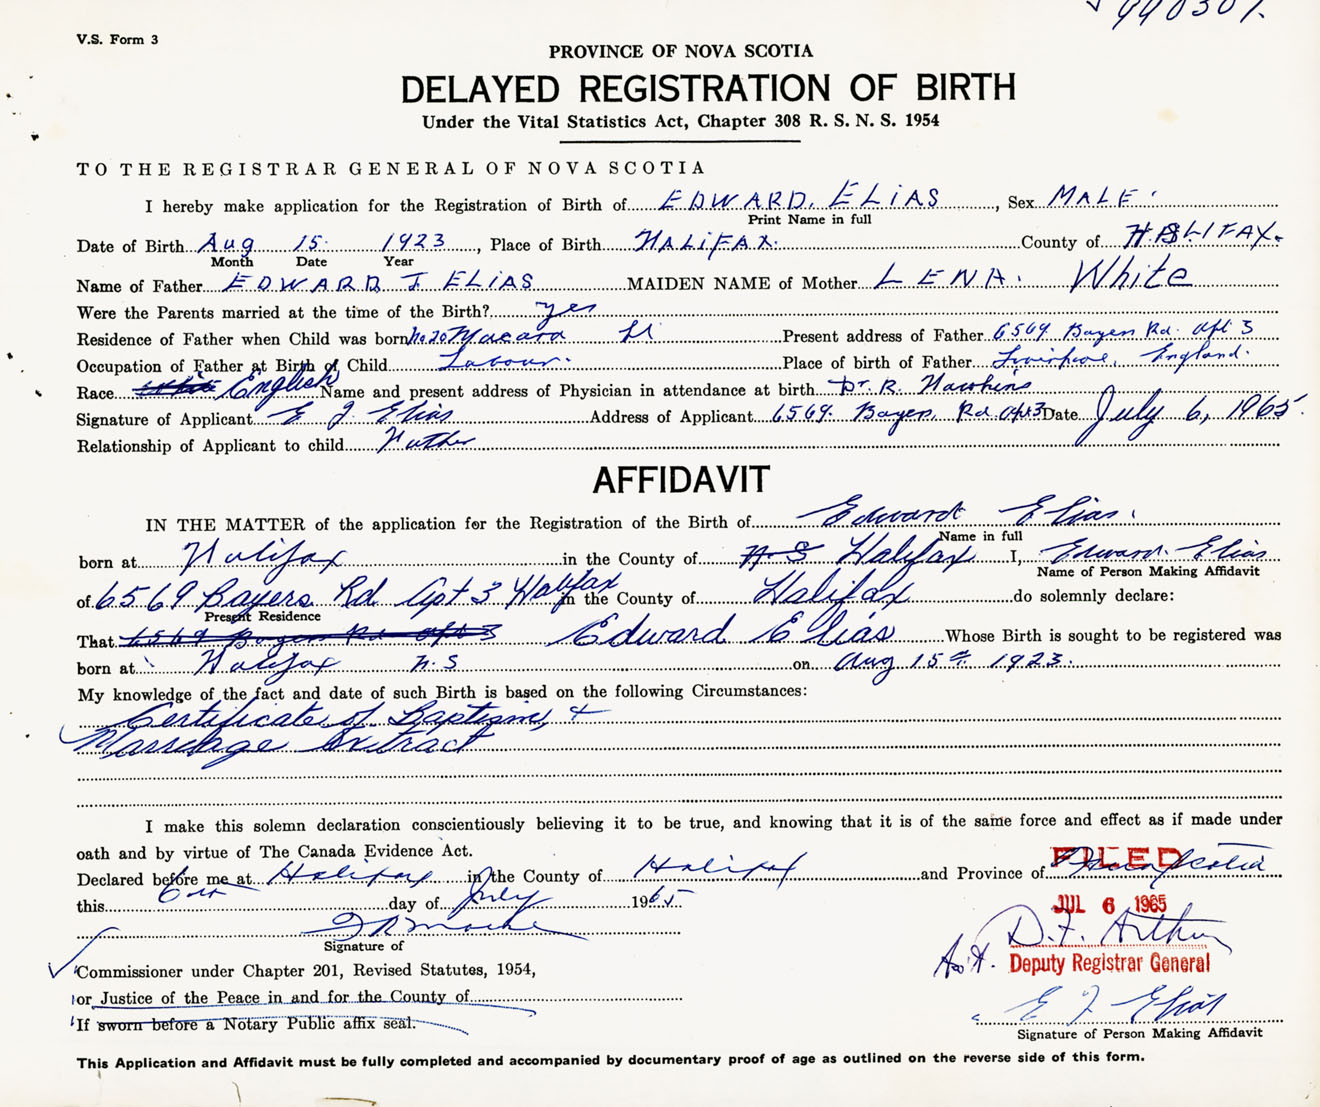 V.S. Form 3
PROVINCE OF NOVA SCOTIA
DELAYED REGISTRATION OF BIRTH
Under the Vital Statistics Act, Chapter 308 R. S. N. S. 1954
TO THE REGISTRAR GENERAL OF NOVA SCOTIA
I hereby make application for the Registration of Birth of EDWARD. ELIAS, Sex MALE.
Print Name in full
Date of Birth Aug 15. 1923, Place of Birth HALIFAX. County of HALIFAX.
Month Date Year
Name of Father EDWARD J. ELIAS MAIDEN NAME of Mother LENA. White
Were the Parents married at the time of the Birth? yes
Residence of Father when Child was born Macara St Present address of Father 6569. Bayers Rd. Apt 3
Occupation of Father at Birth of Child Labour. Place of birth of Father Liverpool, England.
Race White English Name and present address of Physician in attendance at birth Dr. R. Hawkins
Signature of Applicant E J Elias Address of Applicant 6569. Bayers, Rd Apt 3 Date July 6, 1965.
Relationship of Applicant to child
AFFIDAVIT
IN THE MATTER of the application for the Registration of the Birth of Edward Elias.
Name in full
born at Halifax in the County of N S Halifax I, Edward. Elias
Name of Person Making Affidavit
of 6569 Bayers Rd Apt 3 Halifax in the County of Halifax do solemnly declare:
Present Residence
That 6569 Bayers Rd Apt 3 Edward Elias Whose Birth is sought to be registered was
born at Halifax N.S on Aug 15th 1923.
My knowledge of the fact and date of such Birth is based on the following Circumstances:
Certificate of Baptism, &
Marriage Extract
I make this solemn declaration conscientiously believing it to be true, and knowing that it is of the same force and effect as if made under
oath and by virtue of The Canada Evidence Act.
Declared before me at Halifax in the County of Halifax and Province of Nova Scotia
FILED
this 6th day of July 1965
JUL 6 1965
Signature of
D.F. Arthur
Asst. Deputy Registrar General
Commissioner under Chapter 201, Revised Statutes, 1954,
or Justice of the Peace in and for the County of
If sworn before a Notary Public affix seal.
E J Elias
Signature of Person Making Affidavit
This Application and Affidavit must be fully completed and accompanied by documentary proof of age as outlined on the reverse side of this form.